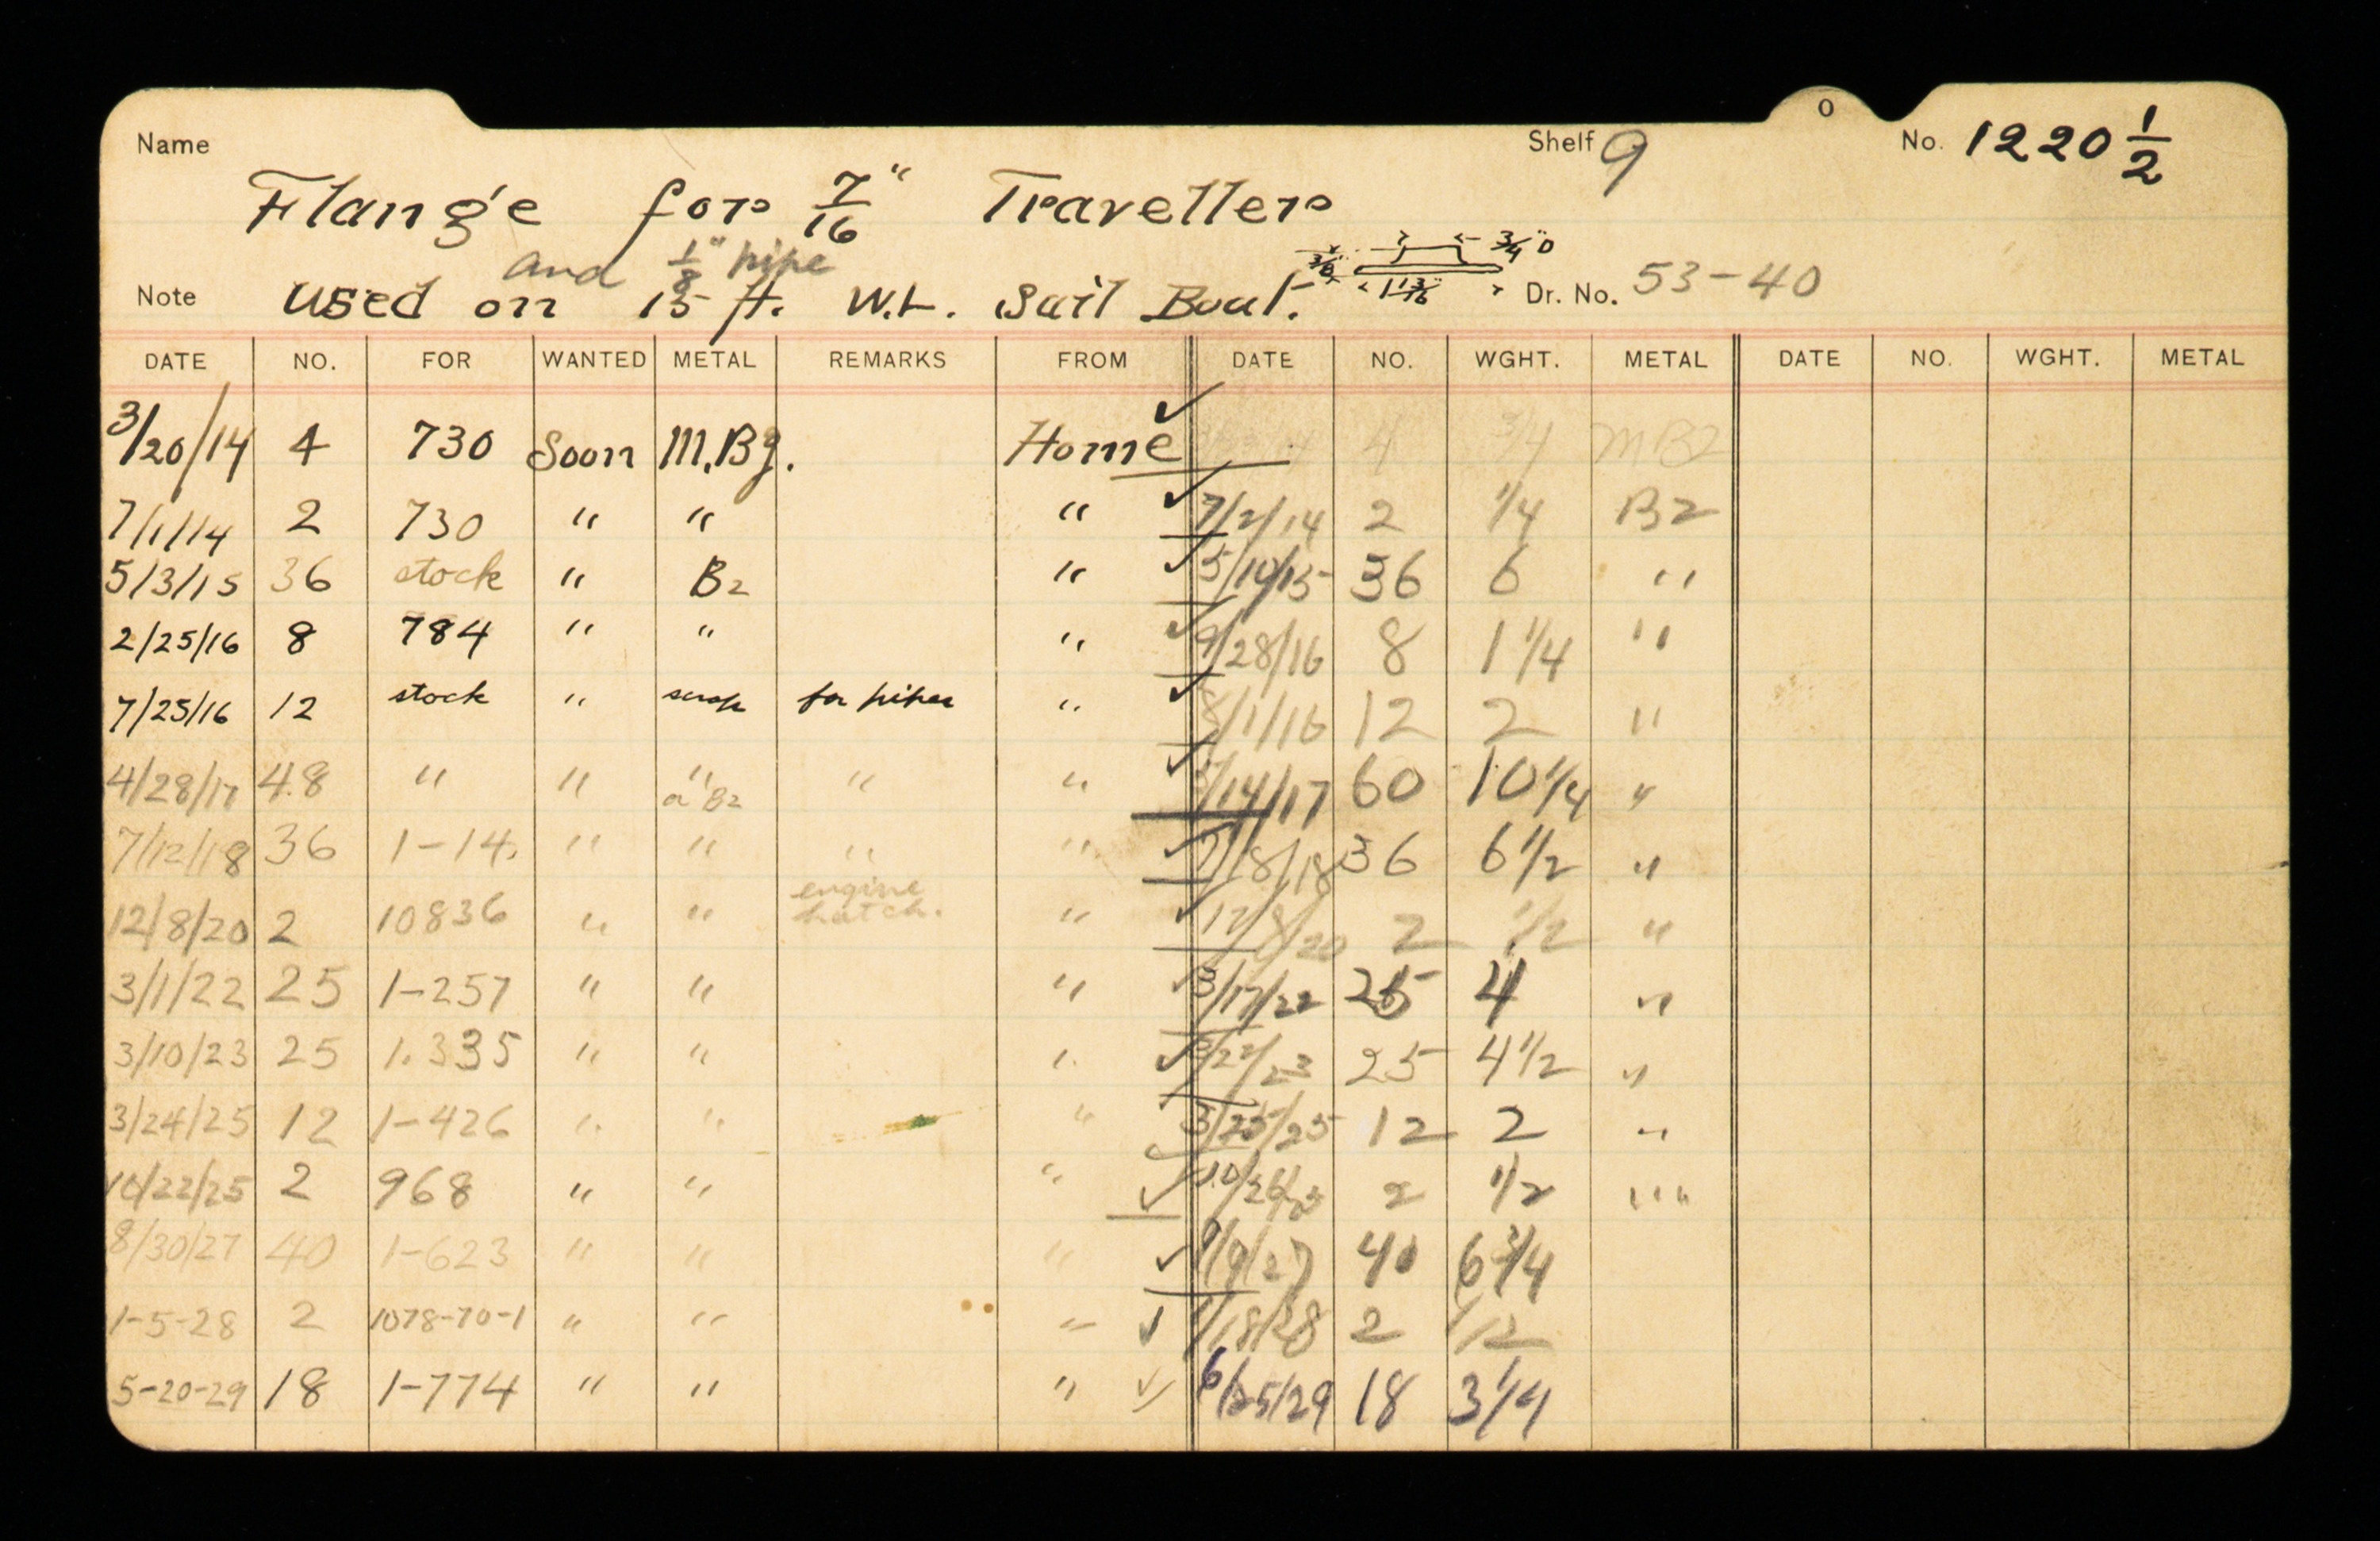 o
Name Shelf 9 No. 1220 1/2
Flange for 7/16" Travellers
and 1/8" pipe
3/8" 3/4" D
1 13/16"
Note Used on 15 ft. W.L. Sail Boat. Dr. No. 53-40
DATE NO. FOR WANTED METAL REMARKS FROM DATE NO. WGHT. METAL DATE NO. WGHT. METAL
3/20/14 4 730 Soon M.Bz. Home ✓ 4 3/4 MBZ
7/1/14 2 730 " " " ✓ 7/2/14 2 1/4 BZ
5/3/15 36 stock " Bz " ✓ 5/10/15 36 6 "
2/25/16 8 784 " " " ✓ 9/28/16 8 1 1/4 "
7/25/16 12 stock " scrap for pipes " ✓ 8/1/16 12 2 "
4/28/17 48 " " " " " ✓ 5/14/17 60 10 1/4 "
a Bz
7/12/18 36 1-14. " " " " ✓ 7/18/18 36 6 1/2 "
12/8/20 2 10836 " " engine hatch. " ✓ 12/8/20 2 1/2 "
3/1/22 25 1-257 " " " ✓ 3/17/22 25 4 "
3/10/23 25 1.335 " " " ✓ 3/22/23 25 4 1/2 "
3/24/25 12 1-426 " " " ✓ 3/25/25 12 2 "
10/22/25 2 968 " " " ✓ 10/26/25 2 1/2 "
8/30/27 40 1-623 " " " ✓ 9/9/27 40 6 3/4
1-5-28 2 1078-70-1 " " " ✓ 1/18/28 2 1/2
5-20-29 18 1-774 " " " ✓ 6/25/29 18 3 1/4